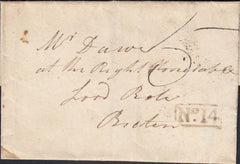 Mr Dawe
at the Right Honorable
Lord Role
Bicton
No. 14